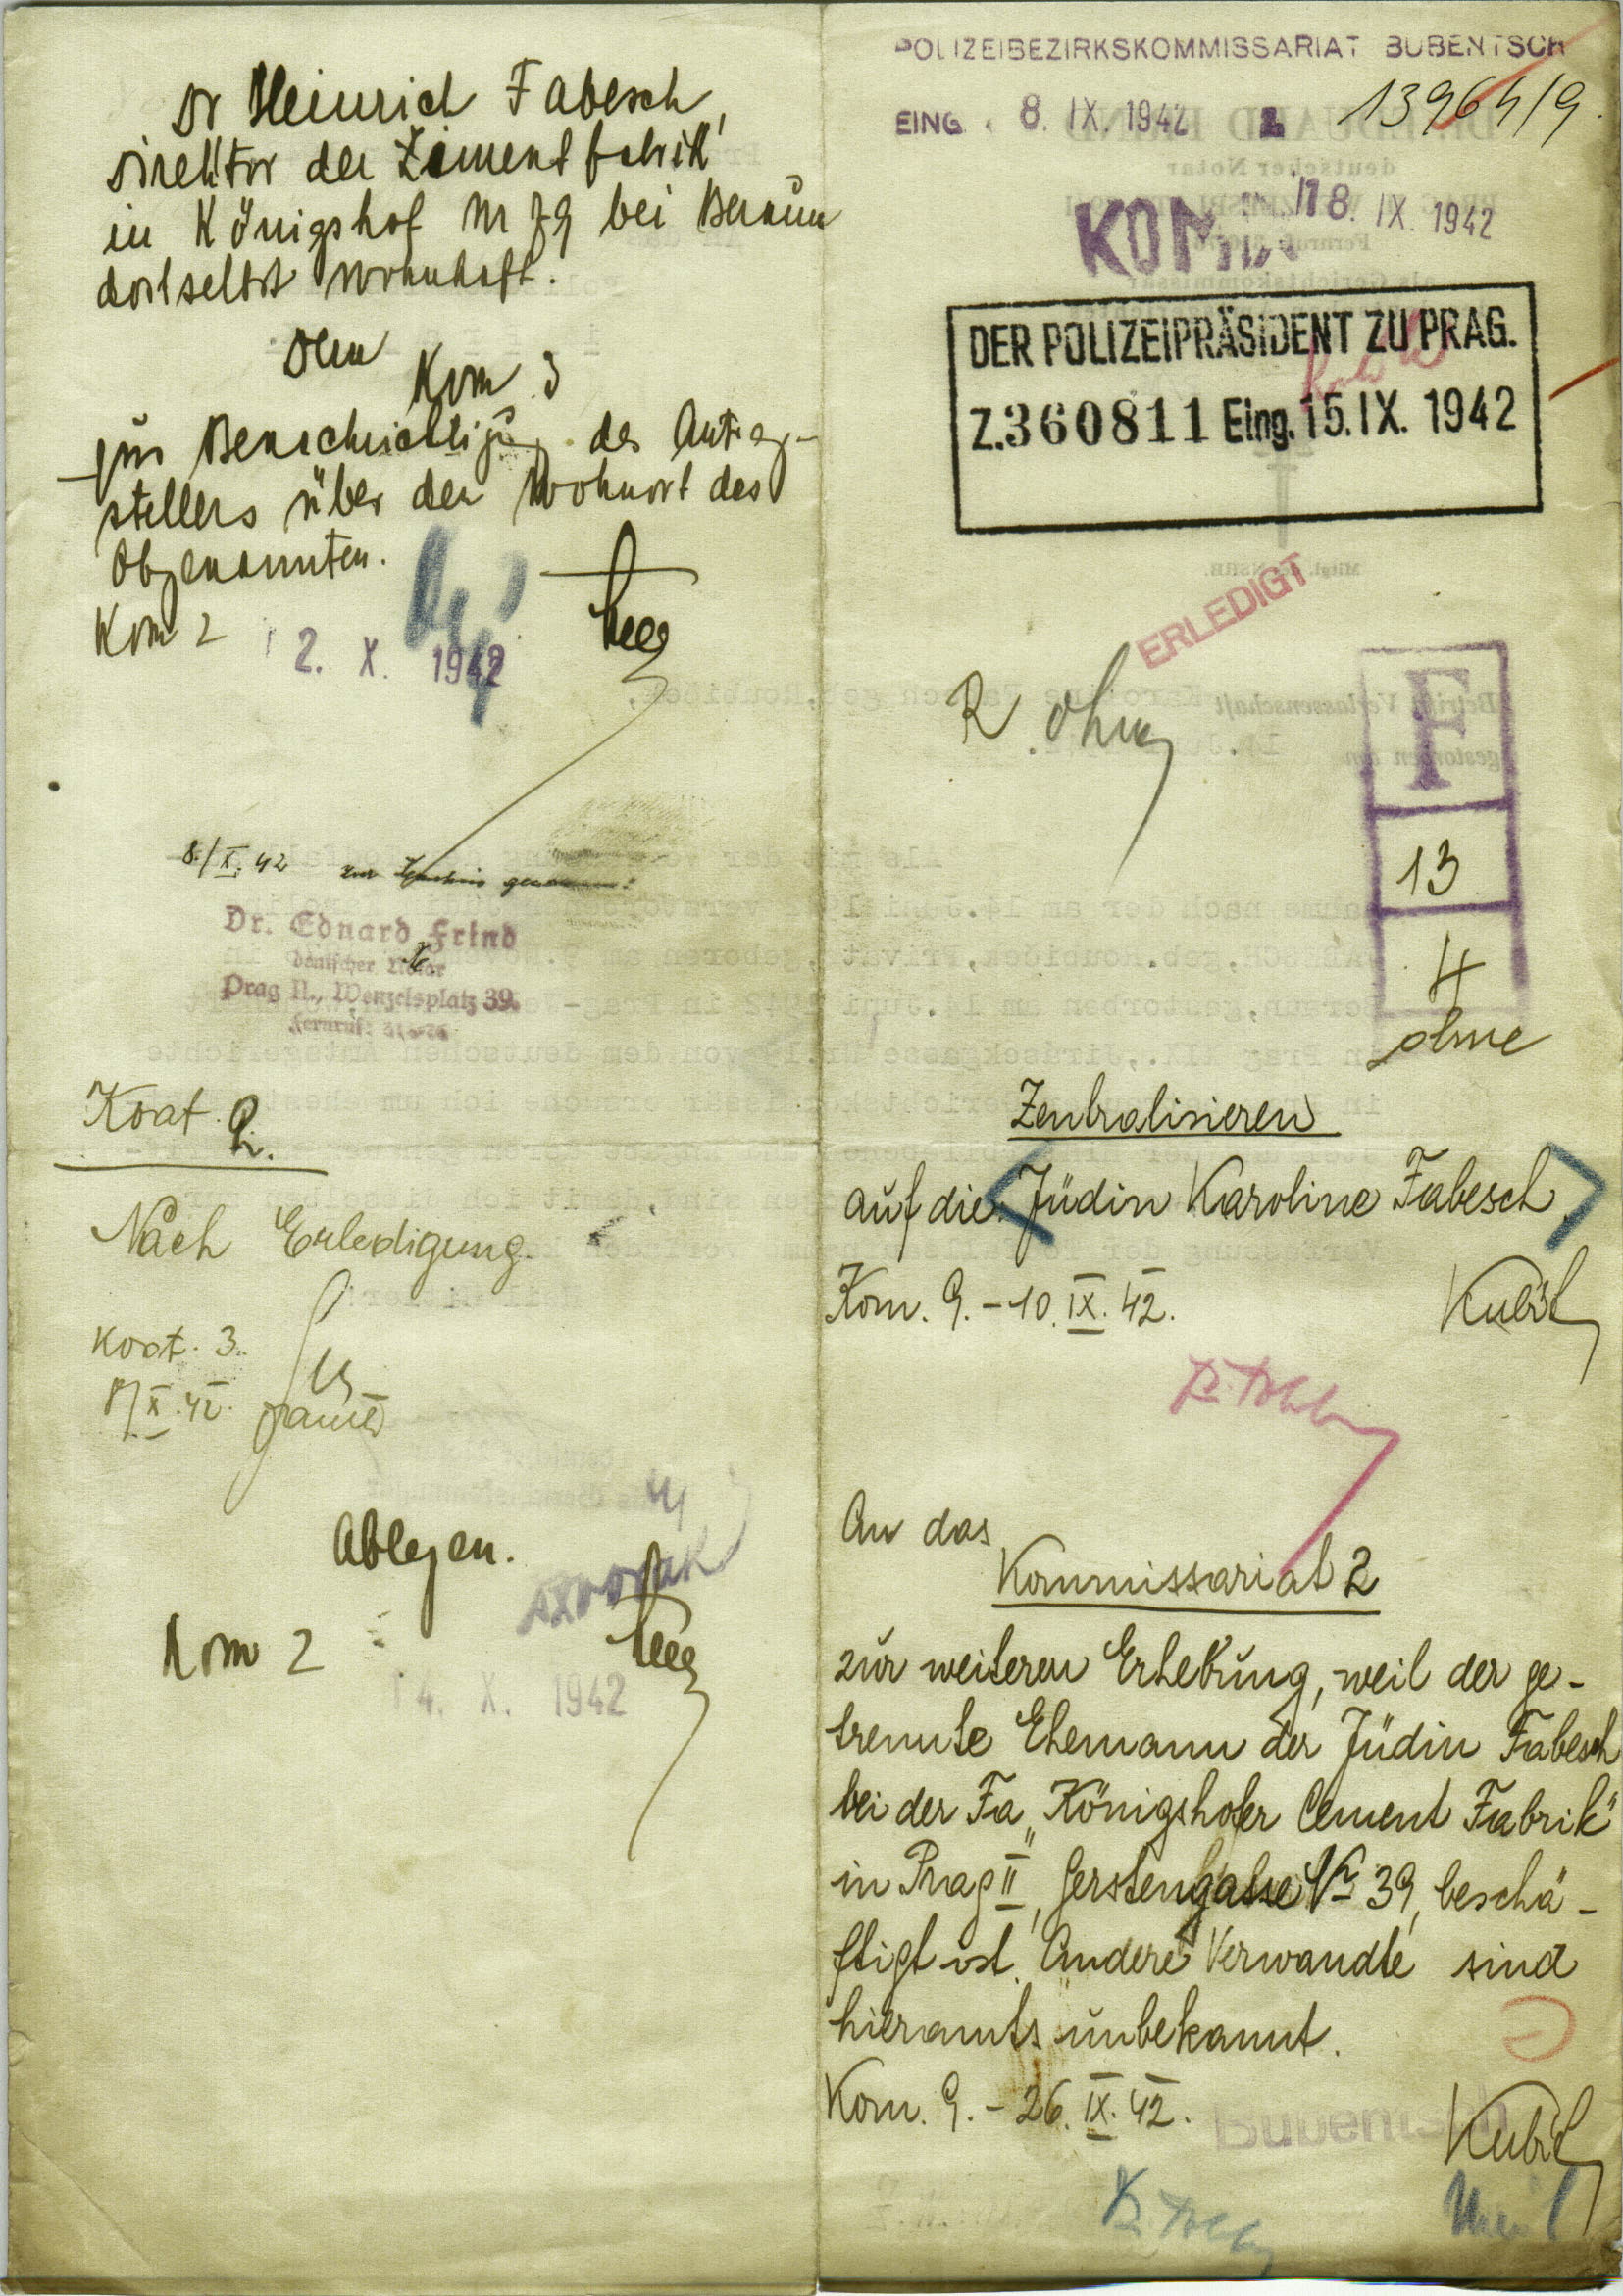 Dr Heinrich Fabesch,
Direktor der Zementfabrik
in Königshof Nr 79 bei Beraun
dortselbst wohnhaft.
Dem
Kom 3
zur Benachrichtigung des Antrag-
stellers über den Wohnort des
Obgenannten.
Kom 2
2. X. 1942
8./X. 42 zur Kenntnis genommen:
Dr. Eduard Frind
deutscher Notar
Prag II., Wenzelsplatz 39.
Fernruf:
Koat. 2.
Nach Erledigung.
Koat. 3.
X. 42.
Ablegen.
Kom 2
14. X. 1942
POLIZEIBEZIRKSKOMMISSARIAT BUBENTSCH
EING. 8. IX. 1942 13964/9.
KOM
18. IX. 1942
DER POLIZEIPRÄSIDENT ZU PRAG.
Z. 360811 Eing. 15. IX. 1942
ERLEDIGT
R. ohne
F
13
4
ohne
Zentralisieren
auf die Jüdin Karoline Fabesch.
Kom. 9. - 10. IX. 42.
An das
Kommissariat 2
zur weiteren Erhebung, weil der ge-
trennte Ehemann der Jüdin Fabesch
bei der Fa „Königshofer Cement Fabrik"
in Prag II, Gerstengasse Nr 39, beschä-
ftigt ist. Andere Verwandte sind
hieramts unbekannt.
Kom. 9. - 26. IX. 42.
Bubentsch